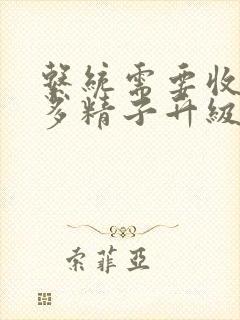 繫統需要收
多精子升級
索菲亞